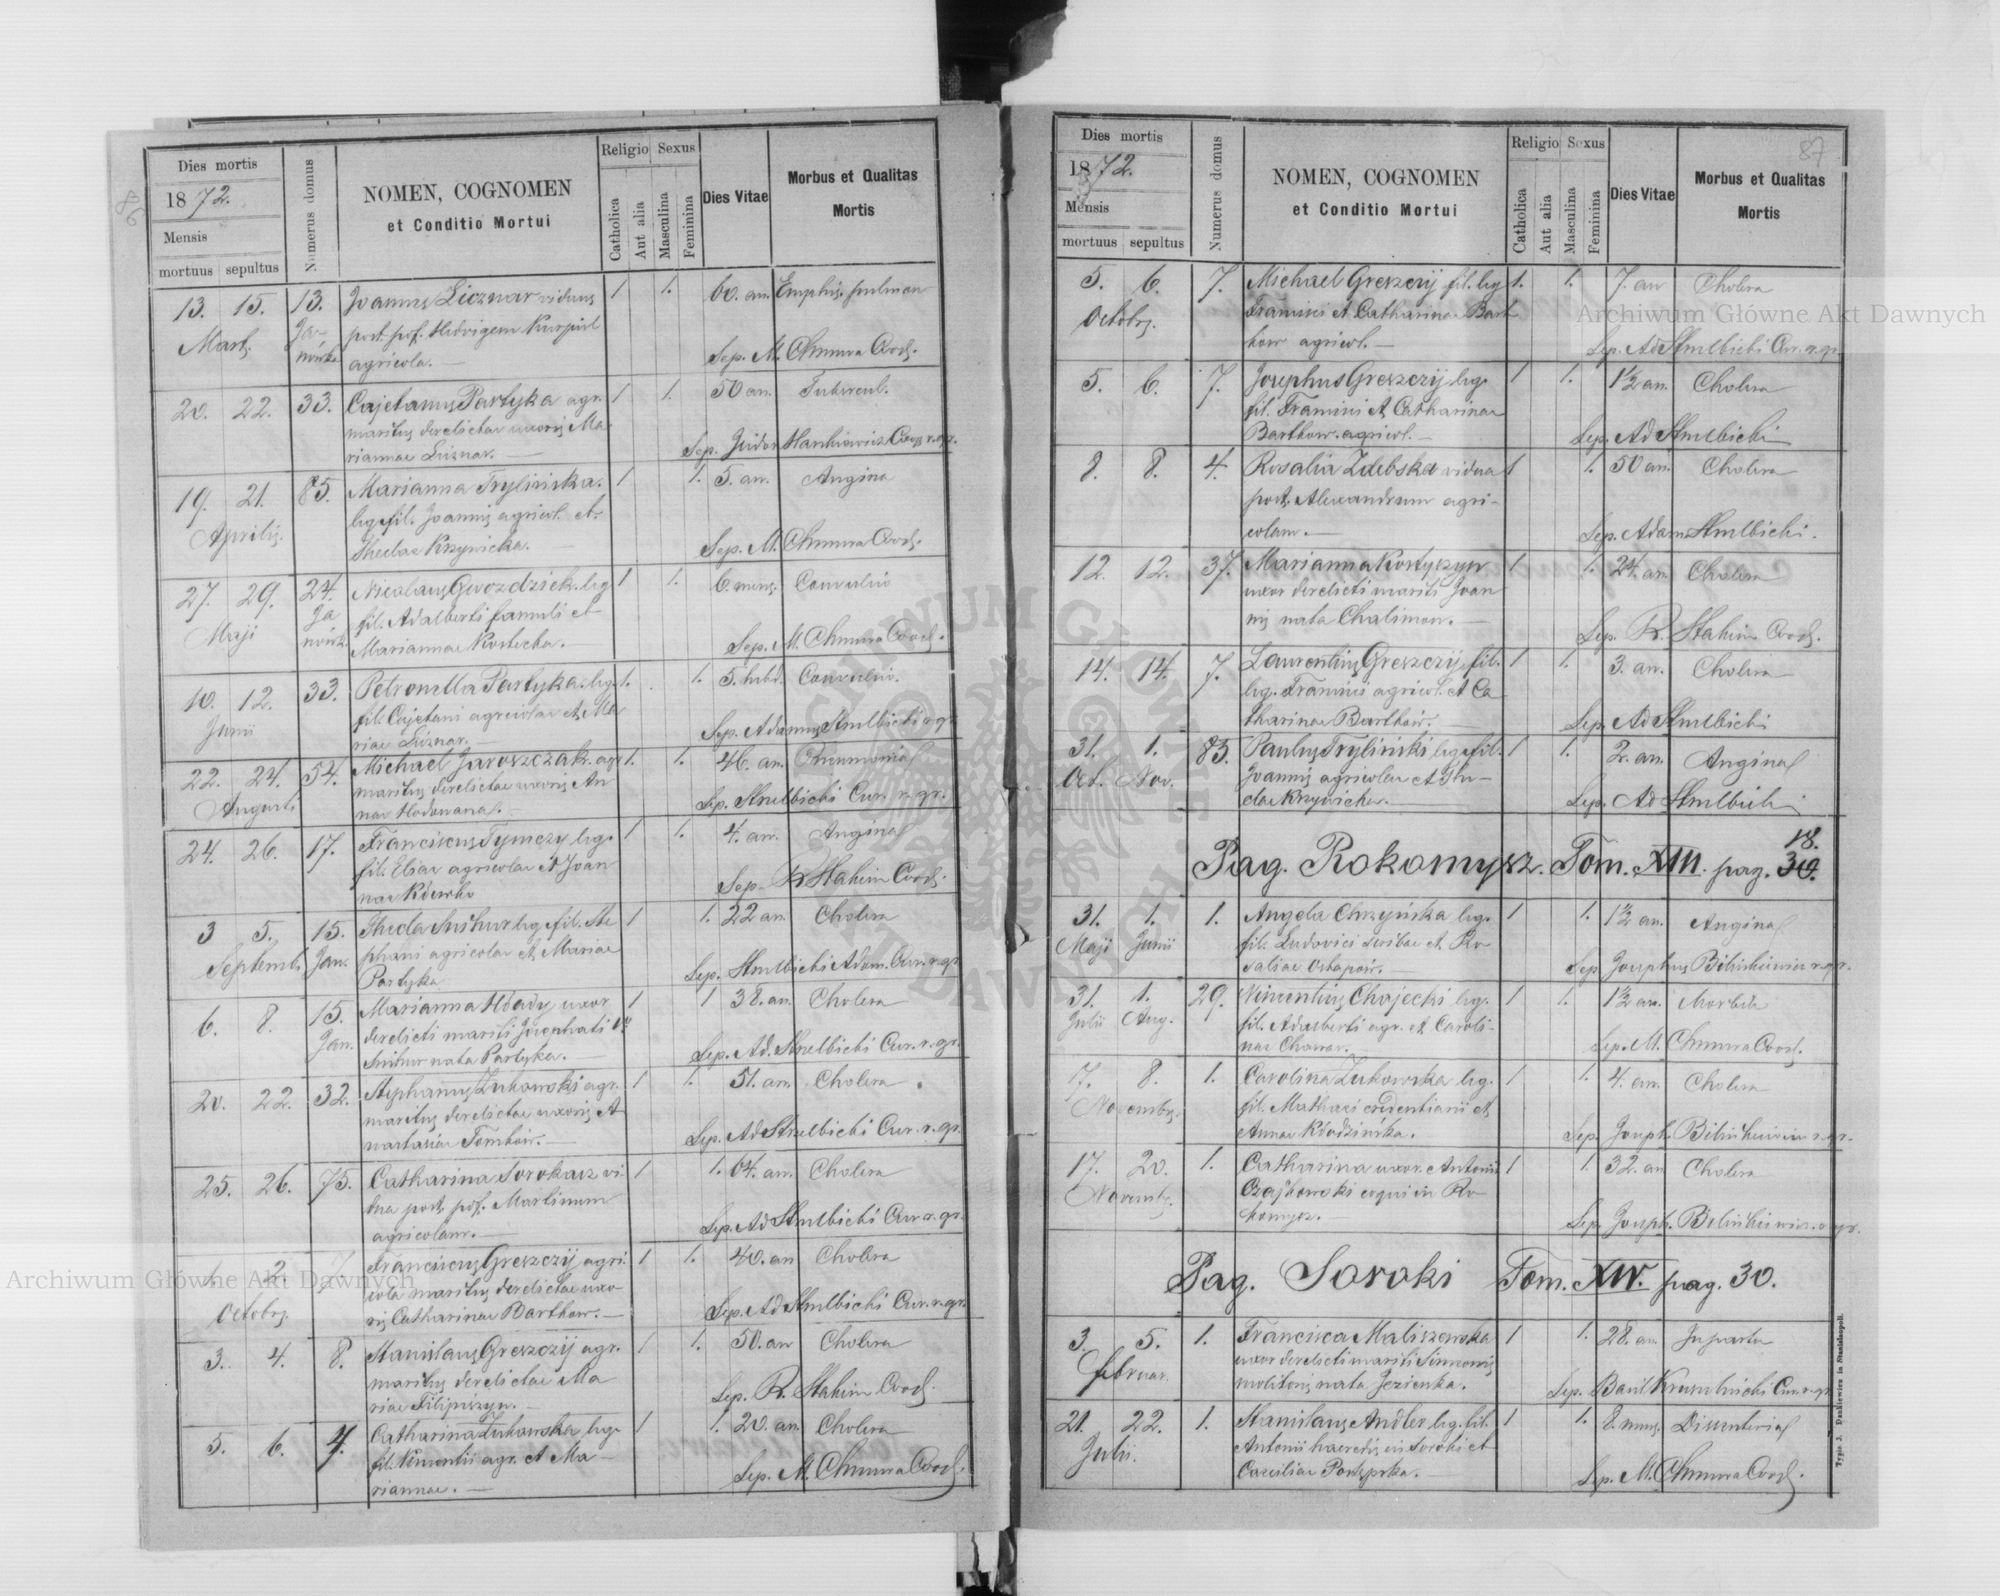 86
Dies mortis
1872.
Mensis
mortuus sepultus
Numerus domus
NOMEN, COGNOMEN
et Conditio Mortui
Religio
Sexus
Catholica
Aut alia
Masculina
Feminina
Dies Vitae
Morbus et Qualitas
Mortis
13. 15. 13. Joannes Licznar viduus 1 1. 60. an. Emphis. pulmon
Mart. Ja- post. pof. Hedvigem
nówka agricola.— Sep. M. Chmura Coop.
20. 22. 33. Cajetanus Partyka agr. 1 1. 50 an. Tubercul.
maritus derelictae uxoris Ma
riannae Liznar.— Sep.
19. 21. 85. Marianna Trylińska. 1 1. 5. an. Angina
Aprilis. leg. fil. Joannis agricol. et
Theclae Krzywicka.— Sep. M. Chmura Coop.
27. 29. 24. Nicolaus Gwozdziek. leg 1 1. 6. mens. Convulsio
Maji Ja fil. Adalberti famuli et
nówk. Mariannae Kostecka. Sep. M. Chmura Coop.
10. 12. 33. Petronella Partyka. leg. 1. 1. 5. hebd. Convulsio.
Junii fil. Cajetani agricolae et Ma
riae Liznar.— Sep. Adamus Strulbicki
22. 24. 54. Michael Jaroszczak. agr 1. 1. 46. an. Pneumonia
Augusti maritus derelictae uxoris An
nae Hodowana.— Sep. Strulbicki Cur. r. gr.
24. 26. 17. Franciscus Tymczy leg. 1 1. 4. an. Angina
fil. Eliae agricolae et Joan
nae Sep. R. Stahim Coop.
3 5. 15. Thecla leg. fil. Ste 1 1. 22 an. Cholera
Septemb. Jan. phani agricolae et Mariae
Partyka Sep. Strulbicki Adam. Cur. r. gr.
6. 8. 15. Marianna uxor 1 1 38. an. Cholera
Jan. derelicti mariti Josephati
nata Partyka.— Sep. Ad. Strulbicki Cur. r. gr.
20. 22. 32. Stephanus Żukowski agr. 1 1. 51. an. Cholera
maritus derelictae uxoris A
nastasiae Tombow.— Sep. Ad Strulbicki Cur. r. gr.
25. 26. 75. Catharina Sorokacz vi- 1 1. 64. an. Cholera
dua post. pof. Martinum
agricolam.— Sep. Ad Strulbicki Cur. r. gr.
1. 2. 7 Franciscus Greszczij agri- 1 1. 40. an Cholera
Octobr. cola maritus derelictae uxo-
ris Catharinae Bartkow.— Sep. Ad Strulbicki Cur. r. gr.
3. 4. 8. Stanislaus Greszczij agr. 1 1. 50. an Cholera
maritus derelictae Ma
riae Filipszyn.— Sep. R. Stahim Coop.
5. 6. 4. Catharina Żukowska leg. 1 1. 20. an. Cholera
fil. Vincentii agr. et Ma-
riannae.— Sep. M. Chmura Coop.
87
Dies mortis
1872.
Mensis
mortuus sepultus
Numerus domus
NOMEN, COGNOMEN
et Conditio Mortui
Religio
Sexus
Catholica
Aut alia
Masculina
Feminina
Dies Vitae
Morbus et Qualitas
Mortis
5. 6. 7. Michael Greszczij fil. leg 1. 1. 7. an Cholera
Octobr. Francisci et Catharinae Bart
kow agricol.— Sep. Ad Strulbicki Cur. r. gr.
5. 6. 7. Josephus Greszczij leg. 1 1. 1½ an. Cholera
fil. Francisci et Catharinae
Bartkow. agricol.— Sep. Ad Strulbicki
8. 8. 4. Rosalia Zdebska vidua 1 1. 50 an. Cholera
post. Alexandrum agri-
colam.— Sep. Adam Strulbicki.
12. 12. 37. Marianna Kostyszyn 1 1. 24. an. Cholera
uxor derelicti mariti Joan
nis nata Chalimon.— Sep. R. Stahim Coop.
14. 14. 7. Laurentius Greszczij fil. 1 1. 3. an. Cholera
leg. Francisci agricol. et Ca
tharinae Bartkow.— Sep. Ad Strulbicki
31. 1. 83. Paulus Tryliński leg. fil. 1 1. 2. an. Angina
Oct. Nov. Joannis agricolae et The-
clae Krzywicka.— Sep. Ad Strulbicki
Pag. Rokomysz. Tom. XIII. pag. 30. 18.
31. 1. 1. Angela Chrzyńska leg. 1 1. 1½ an. Angina
Maji Junii fil. Ludovici scribae et Ro
saliae Ostapow.— Sep. Josephus Bilinkiewicz r. gr.
31. 1. 29. Vincentius Chojecki leg. 1 1. 1½ an. Morbili
Julii Aug. fil. Adalberti agr. et Caroli-
nae Sep. M. Chmura Coop.
7. 8. 1. Carolina Żukowska leg. 1 1. 4. an. Cholera
Novembr. fil. Mathaei credentiarii et
Annae Kłodzińska. Sep. Joseph. Bilinkiewicz r. gr.
17. 20. 1. Catharina uxor. Antonii 1 1. 32. an Cholera
Novemb. Czajkowski coqui in Ro-
komysz.— Sep. Joseph. Bilinkiewicz r. gr.
Pag. Soroki Tom. XIV. pag. 30.
3. 5. 1. Francisca Maliszewska 1 1. 28. an. In partu
Februar. uxor derelicti mariti Simeonis
molitoris nata Jezienka. Sep. Basil Cur. r. gr.
21. 22. 1. Stanislaus Andler leg. fil. 1 1. 8. mens. Dissenteria
Julii. Antonii haeredis in Soroki et
Caeciliae Sep. M. Chmura Coop.
Typis J. Dankiewicz in Stanislaopoli.
Archiwum Główne Akt Dawnych
Archiwum Główne Akt Dawnych
ARCHIWUM GŁÓWNE AKT DAWNYCH